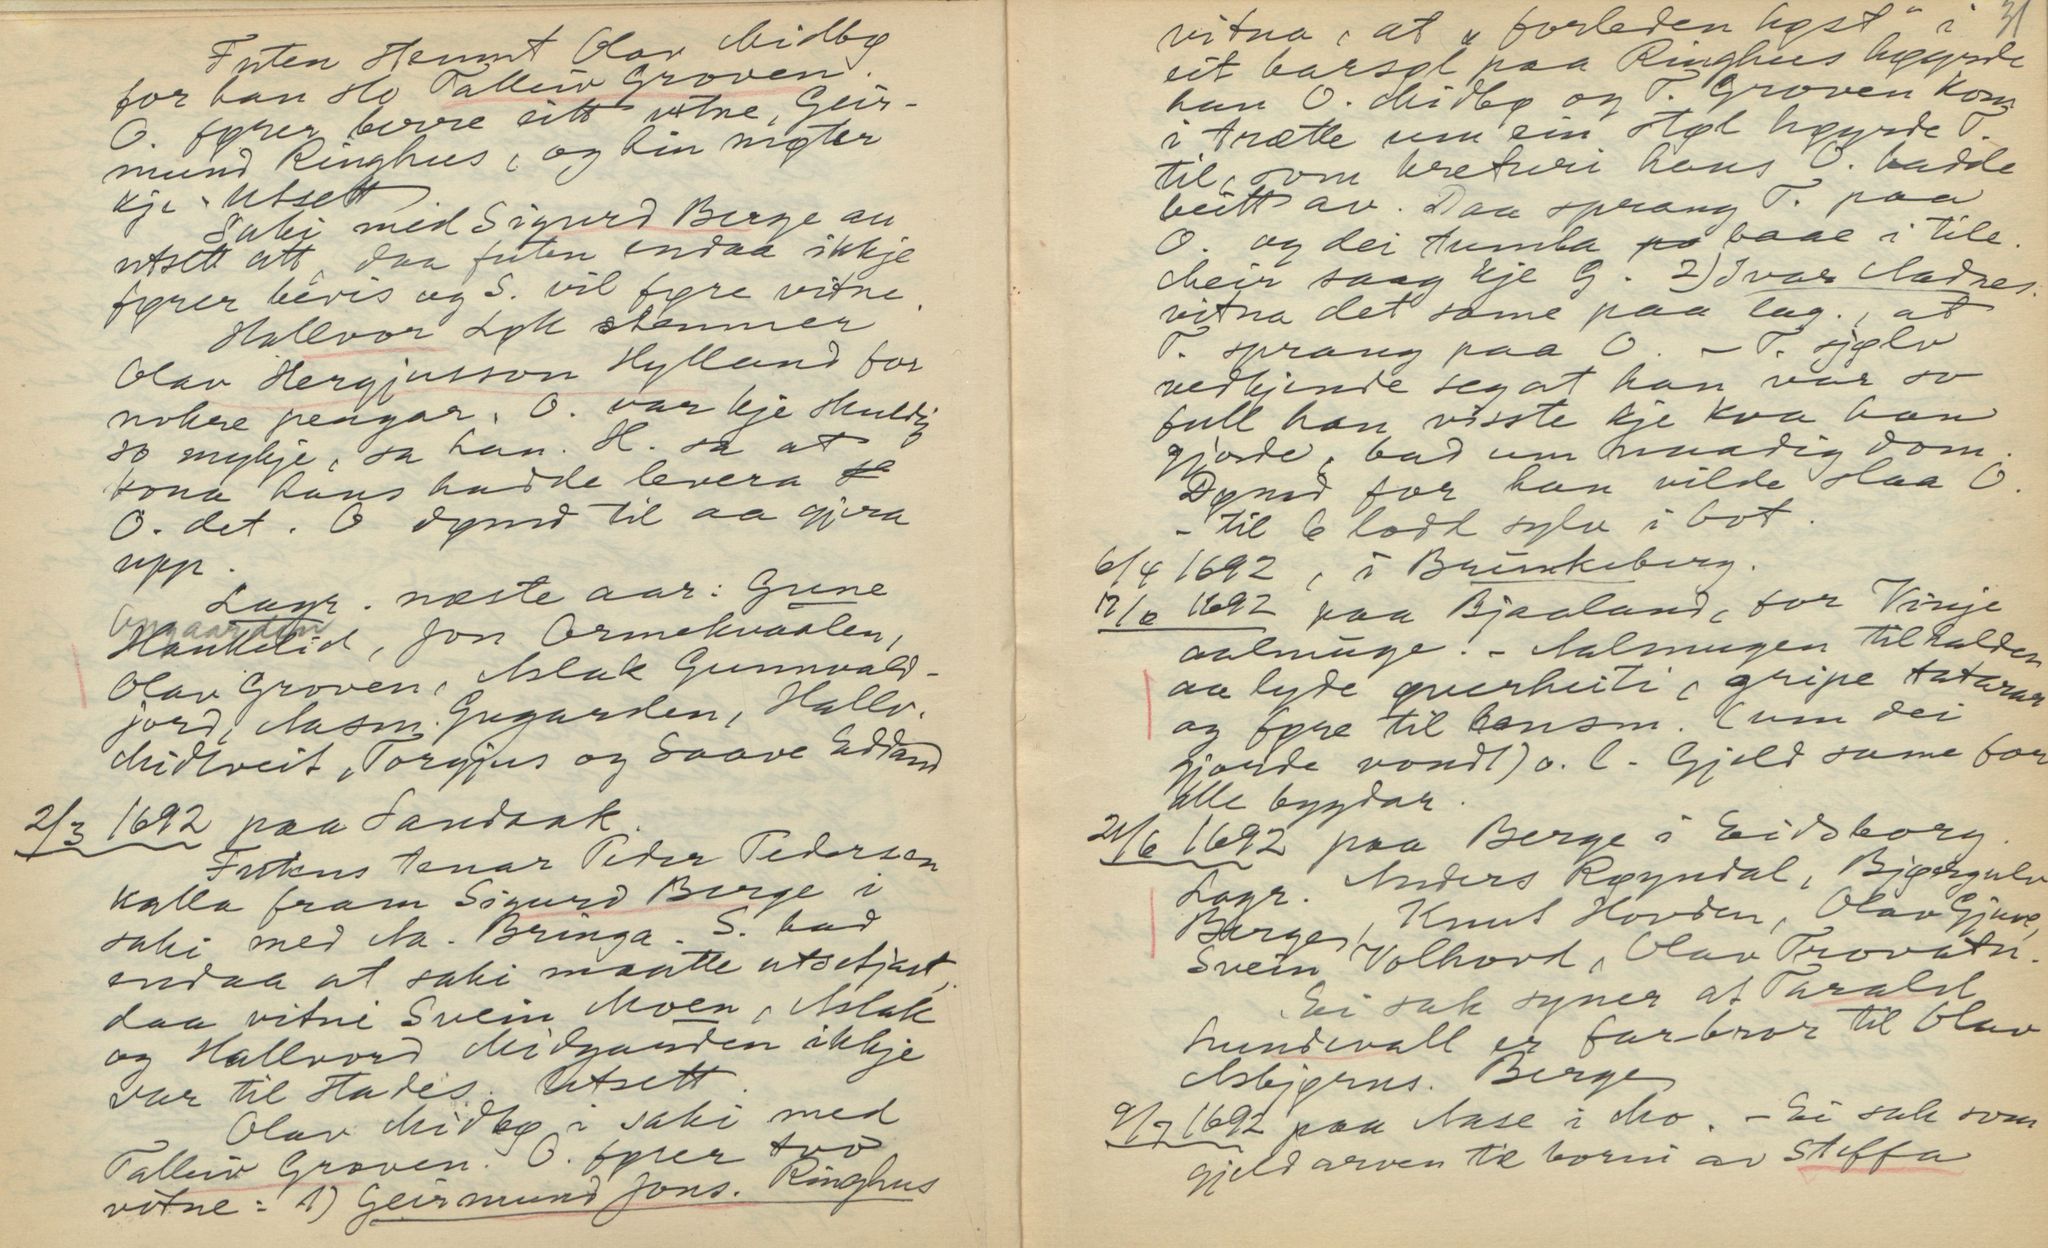 Futen stemnt Olav Midbø
for han slo Talleiv Groven.
O. fører berre eitt vitne, Geir-
mund Ringhus, og hin møter
kje. Utsett
Saki med Sigurd Berge au
utsett att, daa futen endaa ikkje
fører bevis og S. vil føre vitne.
Hallvor Løk stemner
Olav Hergjusson Hylland for
nokre pengar. O. var kje skuldig
so mykje, sa han. H. sa at
kona hans hadde levera
O. det. O dømd til aa gjera
upp.
Lagr. næste aar: Gune
Uppgaarden
Haukelid, Jon Ormekvaalen,
Olav Groven, Aslak Gunnvald-
jord, Aasm. Gugarden, Hallv.
Midtveit, Torgjus og Saave Edland
2/3 1692 paa Sandaak.
Futens tenar Peder Pedersen
kalla fram Sigurd Berge i
saki med Aa. Bringa. S. bad
endaa at saki maatte utsetjast,
daa vitni Svein Moen, Aslak
og Hallvord Midgarden ikkje
var til stades. Utsett.
Olav Midbø i saki med
Talleiv Groven. O. fører tvo
vitne: 1) Geirmund Jons. Ringhus
31
vitna, at "forleden høst" i
eit barsøl paa Ringhus høyrde
han O. Midbø og T. Groven kom
i trætte um ein støl høyrde T.
til, som kreturi hans O. hadde
beitt av. Daa sprang T. paa
O. og dei tumla baae i tile.
Meir saag kje G. 2) Ivar Aadnes.
vitna det same paa lag., at
T. sprang paa O. - T. sjølv
vedkjende seg at han var so
full han visste kje kva han
gjorde, bad um naadig dom.
Dømd for han vilde slaa O.
- til 6 lodd sylv i bot.
6/4 1692, i Brunkeberg.
17/6 1692 paa Bjaaland, for Vinje
aalmuge. - Aalmugen tilhalden
aa lyde øverheiti, gripe tatarar
og føre til lensm. (um dei
gjorde vondt) o. l - Gjeld same for
alle bygdar.
21/6 1692 paa Berge i Eidsborg.
Lagr. Anders Røyndal, Bjørgulv
Berge, Knut Hovden, Olav Gjuve,
Svein Volhovd, Olav Trovatn.
Ei sak syner at Tarald
Sundevall er far-bror til Olav
Asbjørns. Berge
9/7 1692 paa Aase i Mo. - Ei sak som
gjeld arven til borni av Steffa